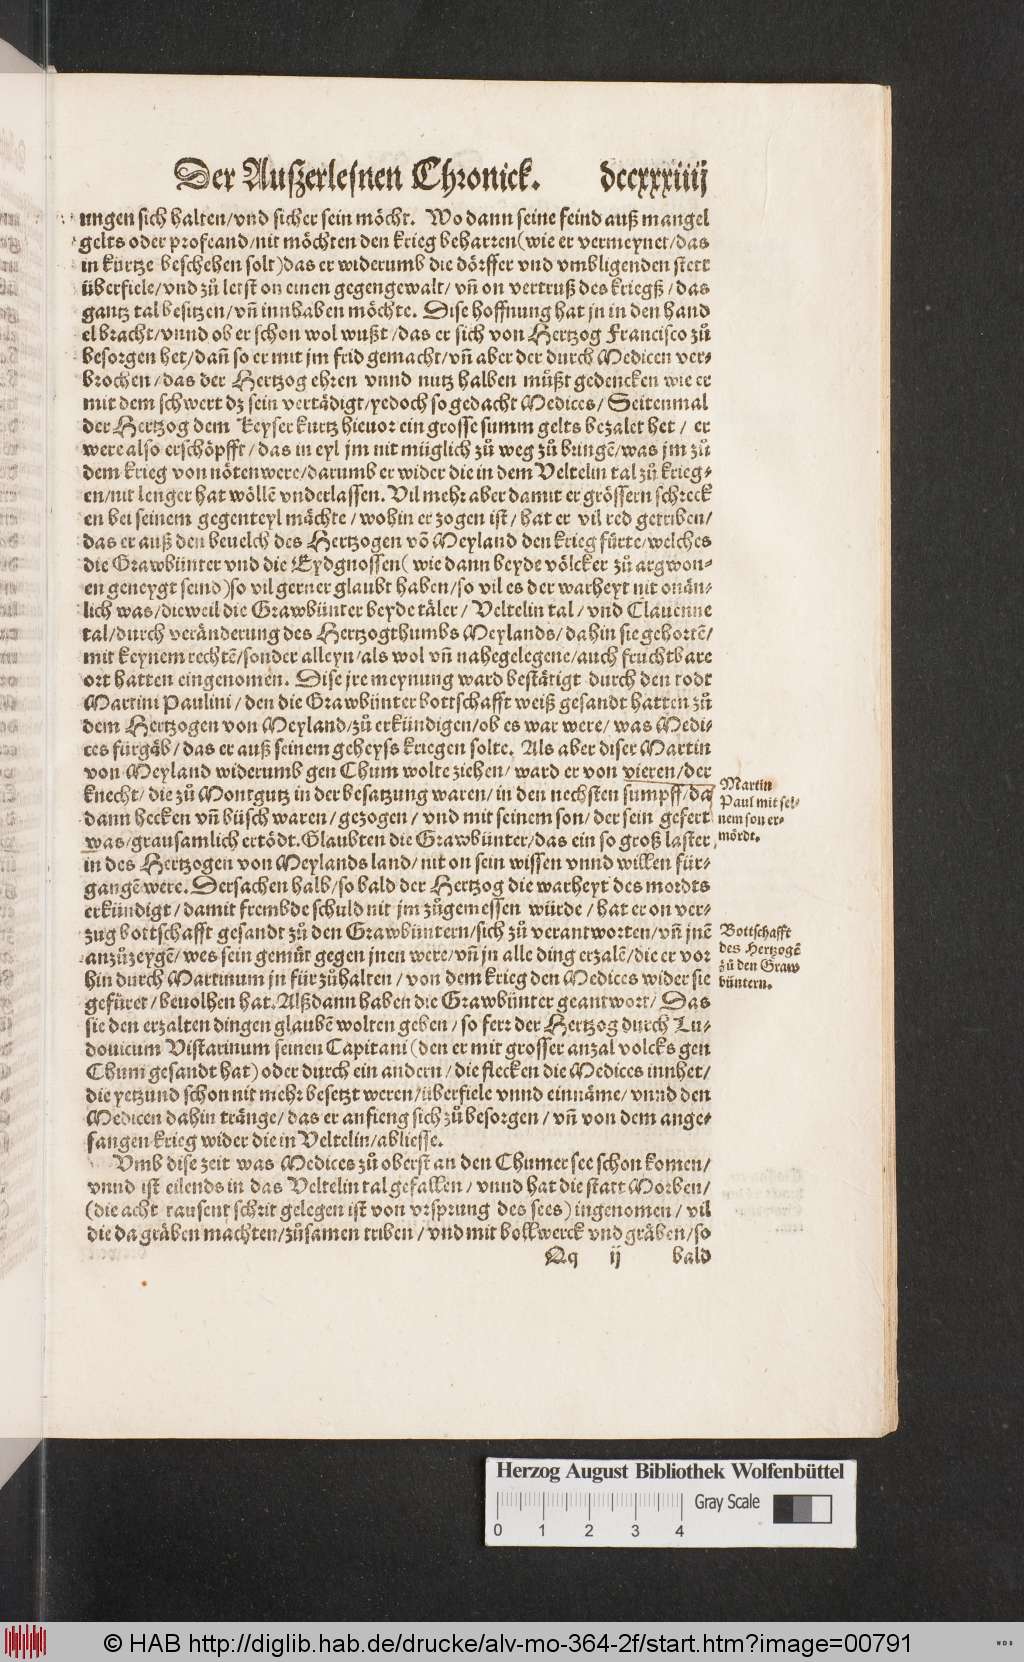 Der Außerlesnen Chronick. dccxxxiiij
ungen sich halten/vnd sicher sein möcht. Wo dann seine feind auß mangel
gelts oder profeand/nit möchten den krieg beharren(wie er vermeynet/das
in kürtze beschehen solt)das er widerumb die dörffer vnd vmbligenden stett
überfiele/vnd zů letst on einen gegengewalt/ vñ on vertruß des kriegß/das
gantz tal besitzen/vñ innhaben möchte. Dise hoffnung hat jn in den hand
el bracht/vnnd ob er schon wol wußt/das er sich von Hertzog Francisco zů
besorgen het/dañ so er mit jm frid gemacht/vñ aber der durch Medicen ver-
brochen/das der Hertzog ehren vnnd nutz halben můßt gedencken wie er
mit dem schwert dz sein vertädigt/yedoch so gedacht Medices/Seitenmal
der Hertzog dem Keyser kurtz hieuor ein grosse summ gelts bezalet het/ er
were also erschöpfft/das in eyl jm nit müglich zů weg zů bringē/was jm zů
dem krieg von nöten were/darumb er wider die in dem Veltelin tal zů krieg-
en/nit lenger hat wöllē vnderlassen. Vil mehr aber damit er grössern schreck
en bei seinem gegenteyl mächte/wohin er zogen ist/hat er vil red getriben/
das er auß den beuelch des Hertzogen võ Meyland den krieg fürte/welches
die Grawbünter vnd die Eydgnossen( wie dann beyde völcker zů argwon-
en geneygt seind)so vil gerner glaubt haben/so vil es der warheyt nit onän-
lich was/dieweil die Grawbünter beyde täler/ Veltelin tal/vnd Clauenne
tal/durch veränderung des Hertzogthumbs Meylands/dahin sie gehortē/
mit keynem rechtē/sonder alleyn/als wol vñ nahe gelegene/auch fruchtbare
ort hatten eingenomen. Dise jre meynung ward bestätigt durch den todt
Martini Paulini/den die Grawbünter bottschafft weiß gesandt hatten zů
dem Hertzogen von Meyland/zů erkündigen/ob es war were/was Medi-
ces fürgäb/das er auß seinem geheyss kriegen solte. Als aber diser Martin
von Meyland widerumb gen Chum wolte ziehen/ward er von vieren/der
knecht/die zů Montgutz in der besatzung waren/in den nechsten sumpff/da
dann hecken vñ büsch waren/gezogen/ vnd mit seinem son/der sein gefert
was/grausamlich ertödt. Glaubten die Grawbünter/das ein so groß laster
in des Hertzogen von Meylands land/nit on sein wissen vnnd willen für-
gangē were. Dersachen halb/so bald der Hertzog die warheyt des mordts
erkündigt/damit frembde schuld nit jm zůgemessen würde/hat er on ver-
zug bottschafft gesandt zů den Grawbüntern/sich zů verantworten/vñ jnē
anzůzeygē/wes sein gemůt gegen jnen were/vñ jn alle ding erzalē/die er vor
hin durch Martinum jn fürzůhalten/von dem krieg den Medices wider sie
gefüret/beuolhen hat. Alßdann haben die Grawbünter geantwort/ Das
sie den erzalten dingen glaubē wolten geben/so ferr der Hertzog durch Lu-
douicum Vistarinum seinen Capitani(den er mit grosser anzal volcks gen
Chum gesandt hat)oder durch ein andern/die flecken die Medices innhet/
die yetzund schon nit mehr besetzt weren/überfiele vnnd einnäme/vnnd den
Medicen dahin tränge/das er anfieng sich zů besorgen/vñ von dem ange-
fangen krieg wider die in Veltelin/abliesse.
Vmb dise zeit was Medices zů oberst an den Chumer see schon komen/
vnnd ist eilends in das Veltelin tal gefallen/vnnd hat die statt Morben/
(die acht tausent schrit gelegen ist von vrsprung des sees)ingenomen/vil
die da gräben machten/zůsamen triben/vnd mit bollwerck vnd gräben/so
Qq ij bald
Martin
Paul mit sei-
nem son er-
mördt.
Bottschafft
des Hertzogē
zů den Graw
büntern.
Herzog August Bibliothek Wolfenbüttel
Gray Scale
0 1 2 3 4
© HAB http://diglib.hab.de/drucke/alv-mo-364-2f/start.htm?image=00791